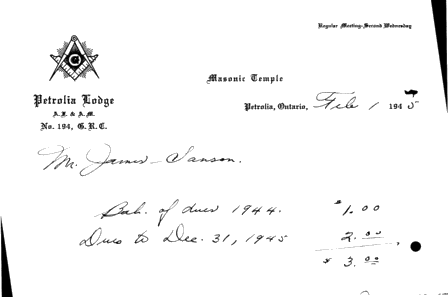 Regular Meeting-Second Wednesday
Masonic Temple
Petrolia Lodge
A.F. & A.M.
No. 194, G.R.C.
Petrolia, Ontario, Feb 1 1945
Mr. James Sanson.
Bal. of dues 1944. $1.00
Dues to Dec. 31, 1945 2.00
$ 3.00